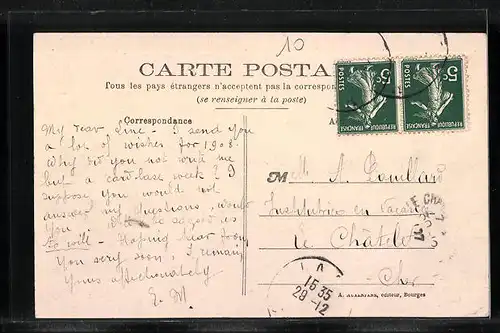 10
CARTE POSTA
Tous les pays étrangers n'acceptent pas la correspon
(se renseigner à la poste)
Correspondance
My dear Line - I send you
a lot of wishes for 1908.
Why did you not write me
but a card last week? I
suppose you would not
answer my questions, would
you
so will - Hoping hear from
you very soon, I remain
Yours affectionately
E. M.
5c 5c
POSTES POSTES
REPUBLIQUE FRANÇAISE REPUBLIQUE FRANÇAISE
M. A.
Institutrice en
Le Châtelet
Cher
LE CHA
15 35
29-12
A. AUXENFANS, éditeur, Bourges